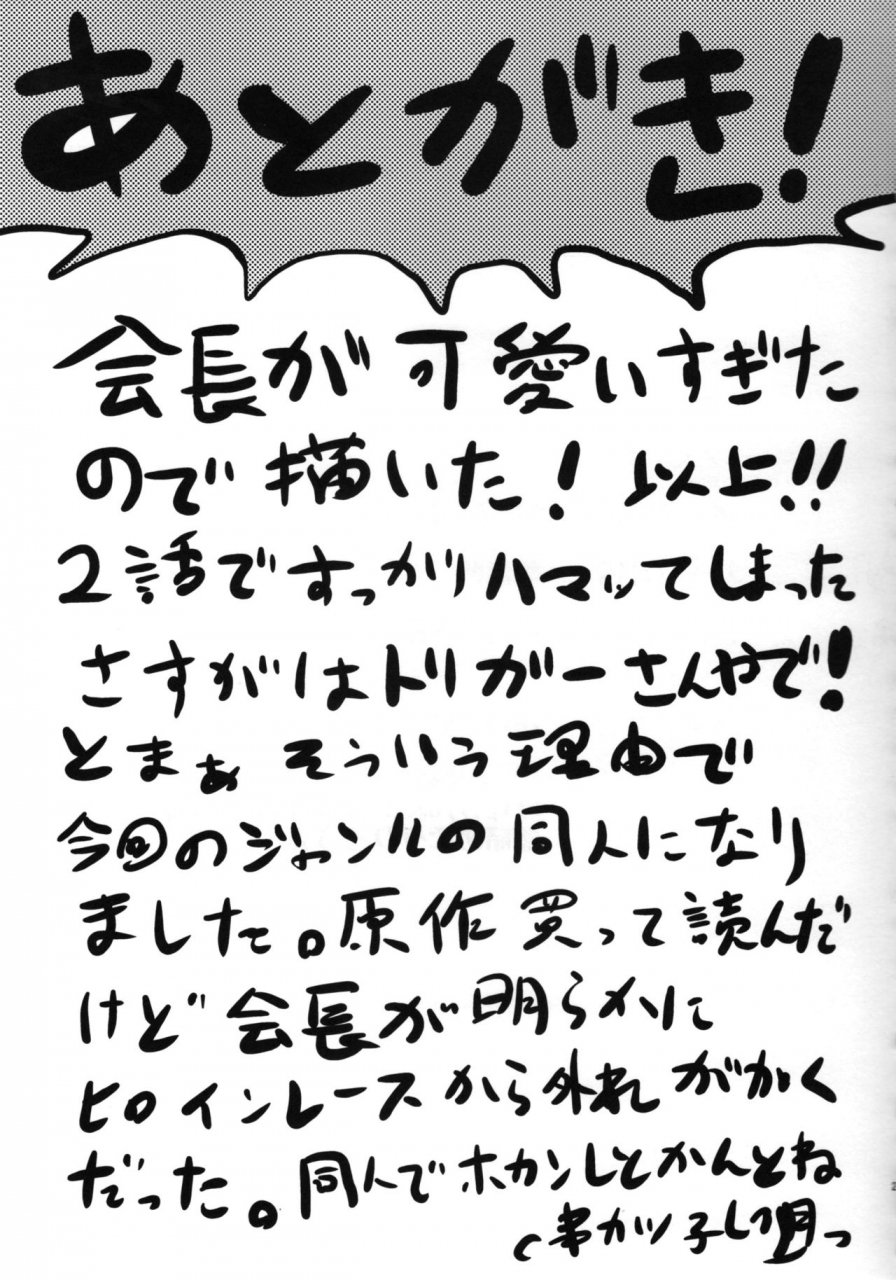 あとがき!
会長が可愛いすぎた
ので描いた! 以上!!
2話ですっかりハマッてしまった
さすがはトリガーさんやで!
とまぁ そういう理由で
今回のジャンルの同人になり
ました。原作買って読んだ
けど会長が明らかに
ヒロインレースから外れ ががく
だった。同人でホカンしとかんとね
串カツ子